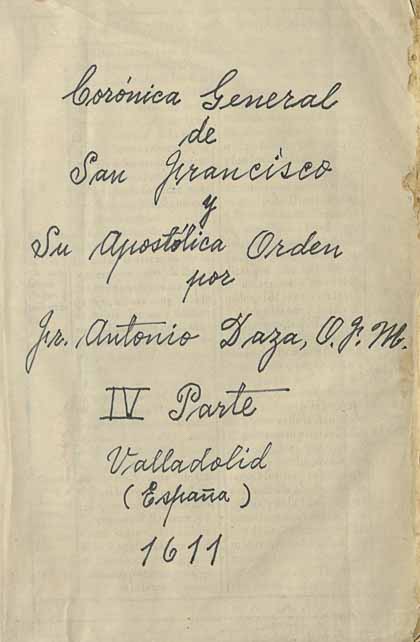 Corónica General
de
San Francisco
y
Su Apostólica Orden
por
Fr. Antonio Daza, O.F.M.
IV Parte
Valladolid
(España)
1611